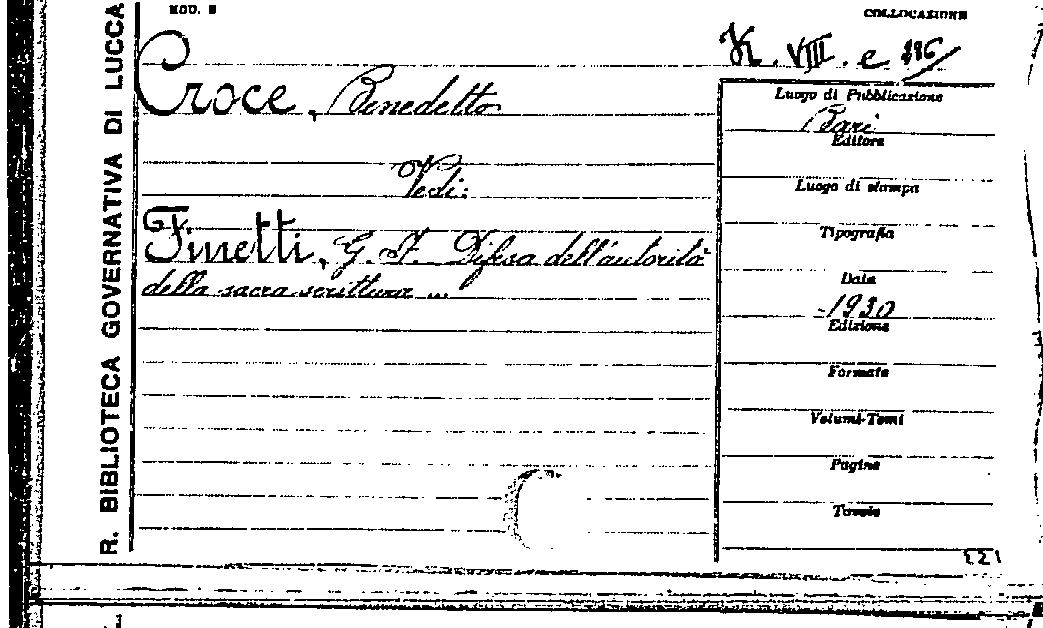 MOD. B
COLLOCAZIONE
R. BIBLIOTECA GOVERNATIVA DI LUCCA
K. VIII. e 116
Croce, Benedetto
Vedi:
Finetti, G. F. Difesa dell'autorità
della sacra scrittura ...
Luogo di Pubblicazione
Bari
Editore
Luogo di stampa
Tipografia
Data
1930
Edizione
Formato
Volumi-Tomi
Pagine
Tavole